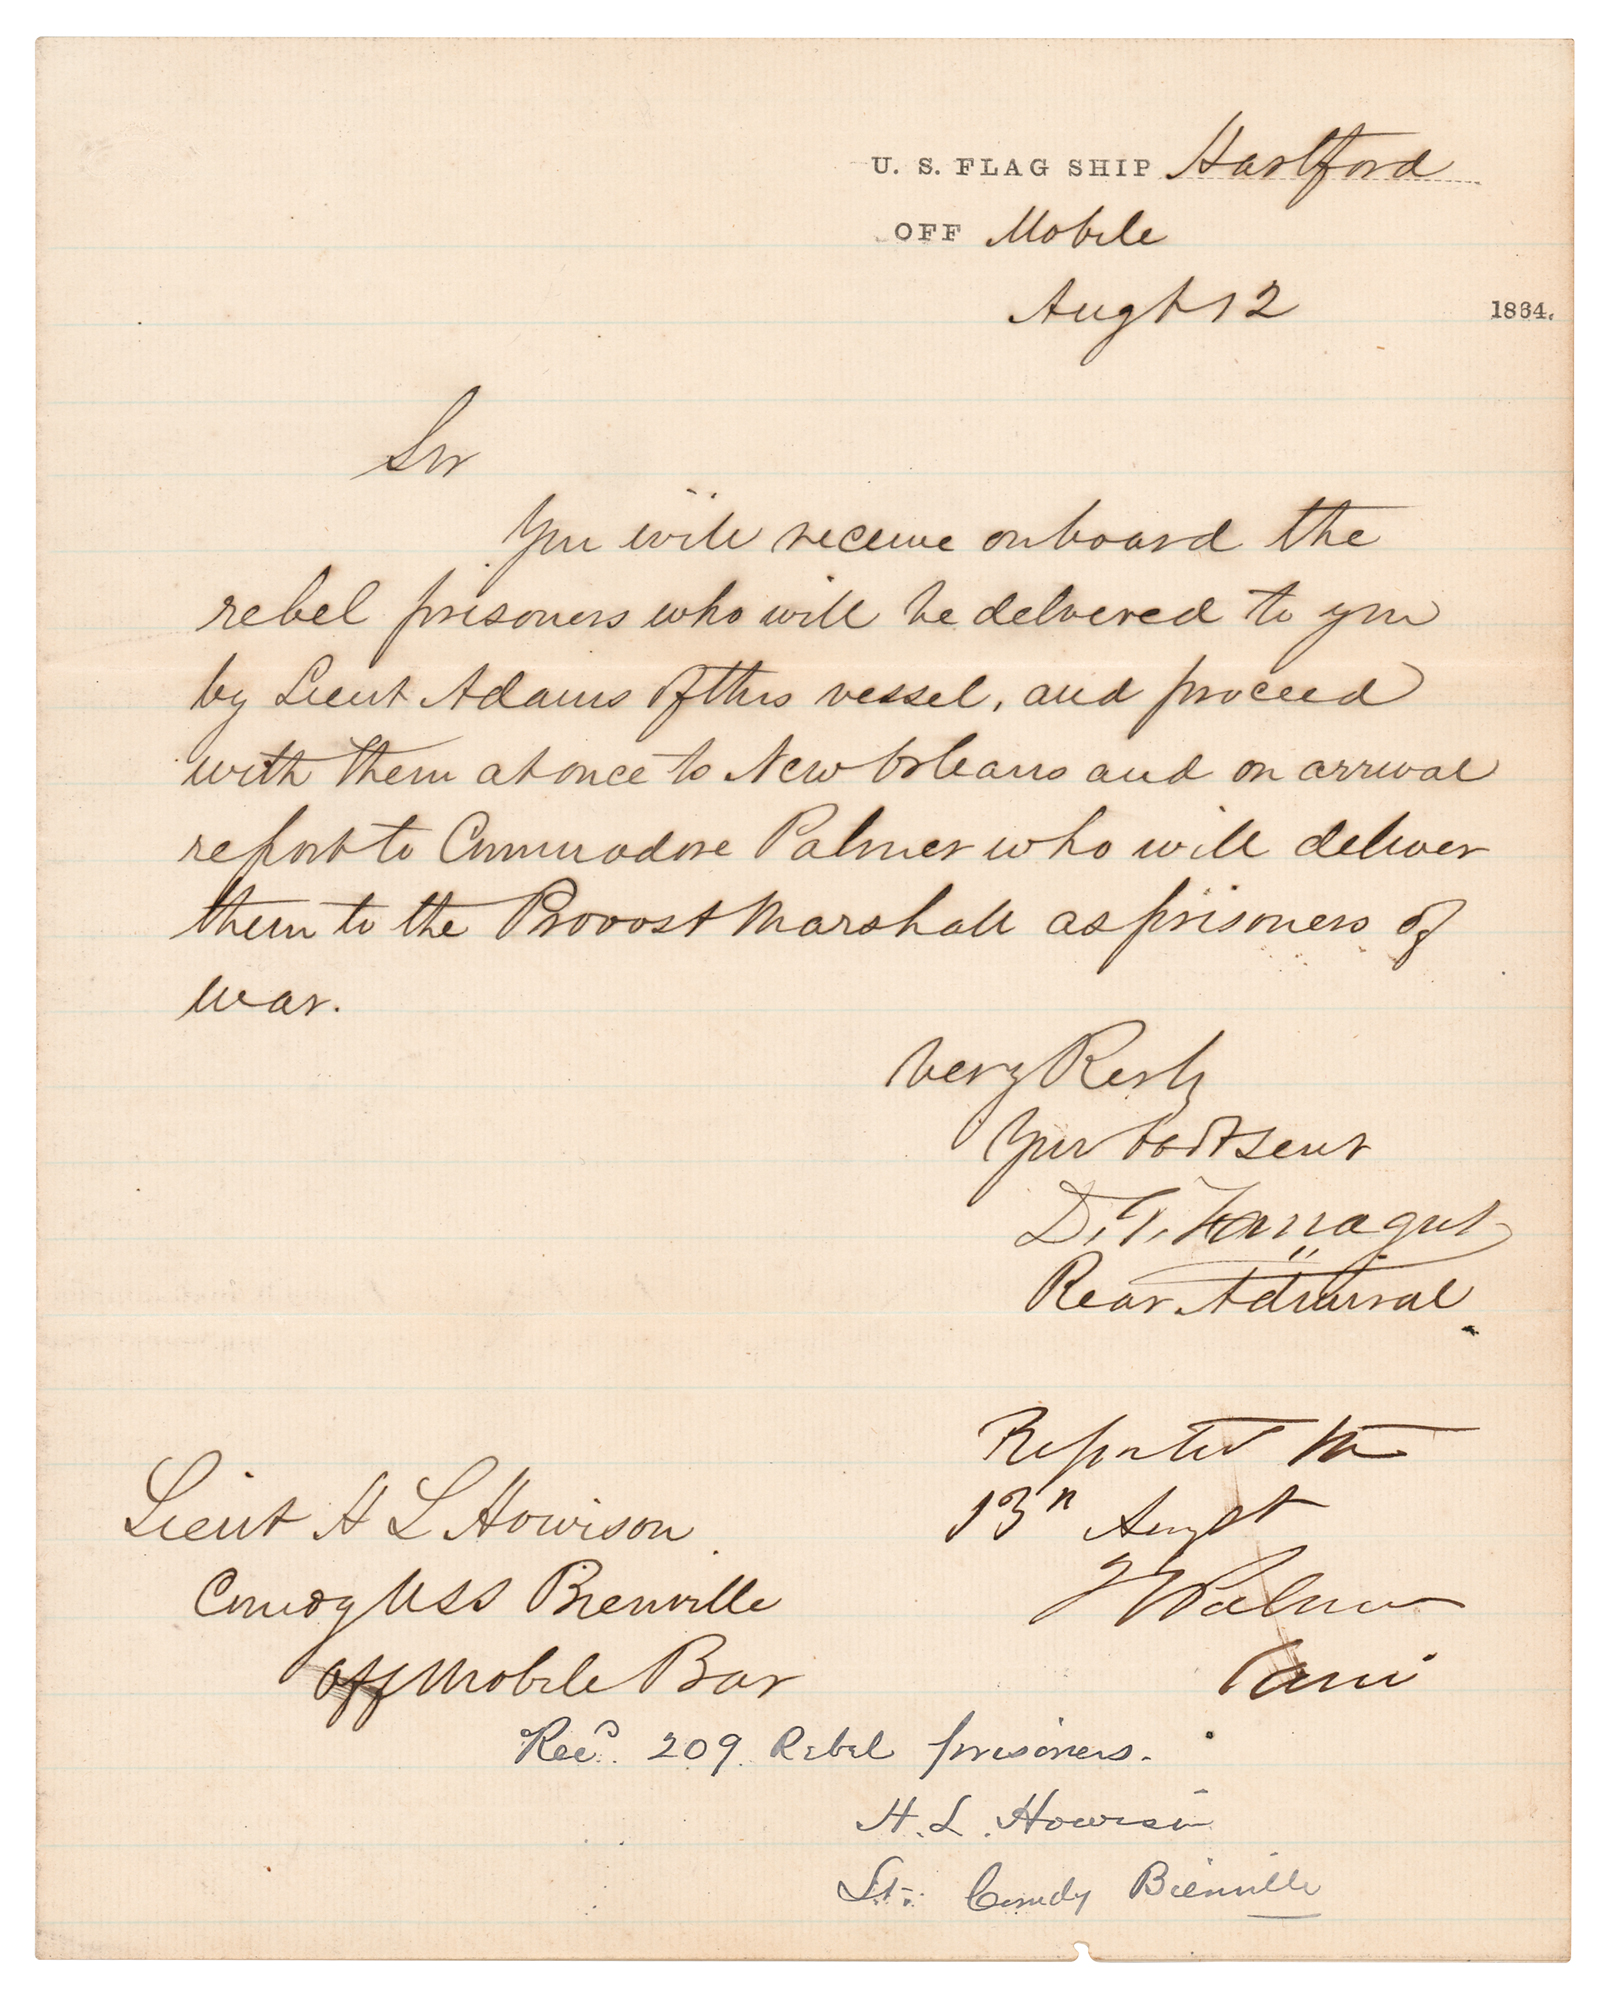 U. S. FLAG SHIP Hartford
OFF Mobile
Augt 12 1864.
Sir
You will receive onboard the
rebel prisoners who will be delivered to you
by Lieut Adams of this vessel, and proceed
with them at once to New Orleans and on arrival
report to Commodore Palmer who will deliver
them to the Provost Marshall as prisoners of
war.
Very Resty
Your Obdt Servt
D. G. Farragut
Rear Admiral
Reported
13th Augst
Palmer
Lieut H L Howison
Comdg USS Bienville
off Mobile Bar
Recd. 209 Rebel prisoners.
H. L. Howison
Lt. Comdg Bienville